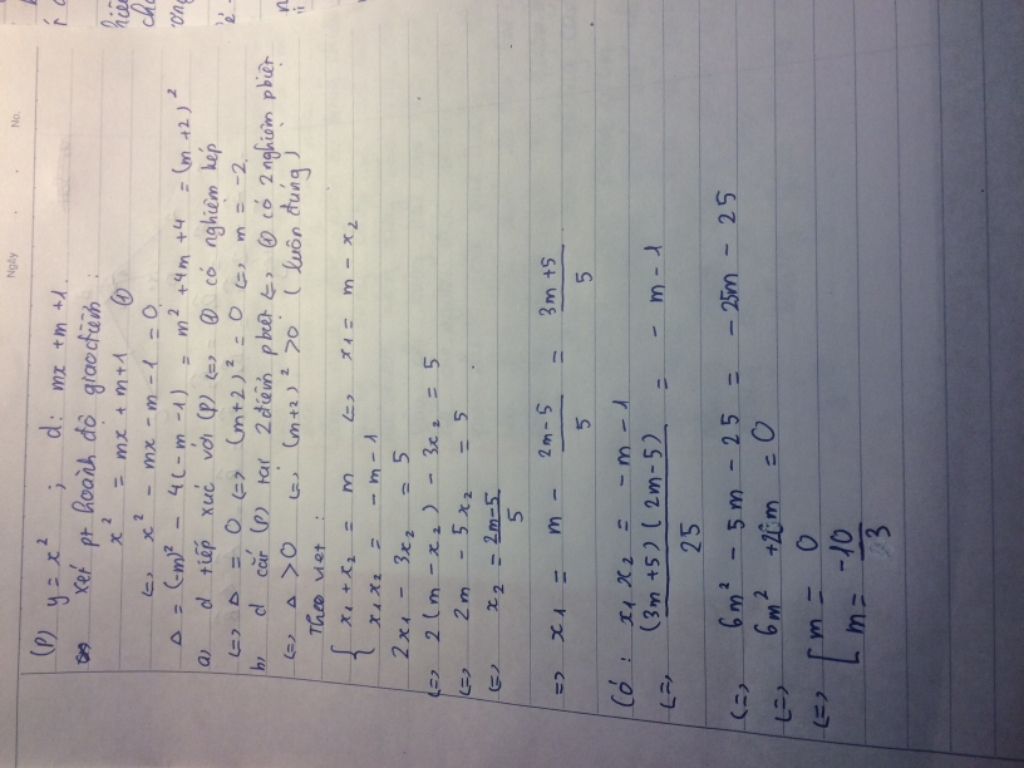 Ngày No.
(P) y = x² ; d: mx + m + 1.
xét pt hoành độ giao điểm:
x² = mx + m + 1 ①
(=) x² - mx - m - 1 = 0
Δ = (-m)² - 4(-m - 1) = m² + 4m + 4 = (m + 2)²
a) d tiếp xúc với (P) (=) ① có nghiệm kép
(=) Δ = 0 (=) (m + 2)² = 0 (=) m = -2.
b) d cắt (P) tại 2 điểm phiệt (=) ① có 2 nghiệm phiệt
(=) Δ > 0 (=) (m + 2)² > 0 (luôn đúng)
Theo viet:
{ x₁ + x₂ = m (=) x₁ = m - x₂
x₁x₂ = -m - 1
2x₁ - 3x₂ = 5
(=) 2(m - x₂) - 3x₂ = 5
(=) 2m - 5x₂ = 5
(=) x₂ = (2m-5)/5
=) x₁ = m - (2m-5)/5 = (3m+5)/5
Có: x₁x₂ = -m - 1
(=) (3m+5)(2m-5)/25 = -m - 1
(=) 6m² - 5m - 25 = -25m - 25
(=) 6m² + 20m = 0
(=) [ m = 0
m = -10/3